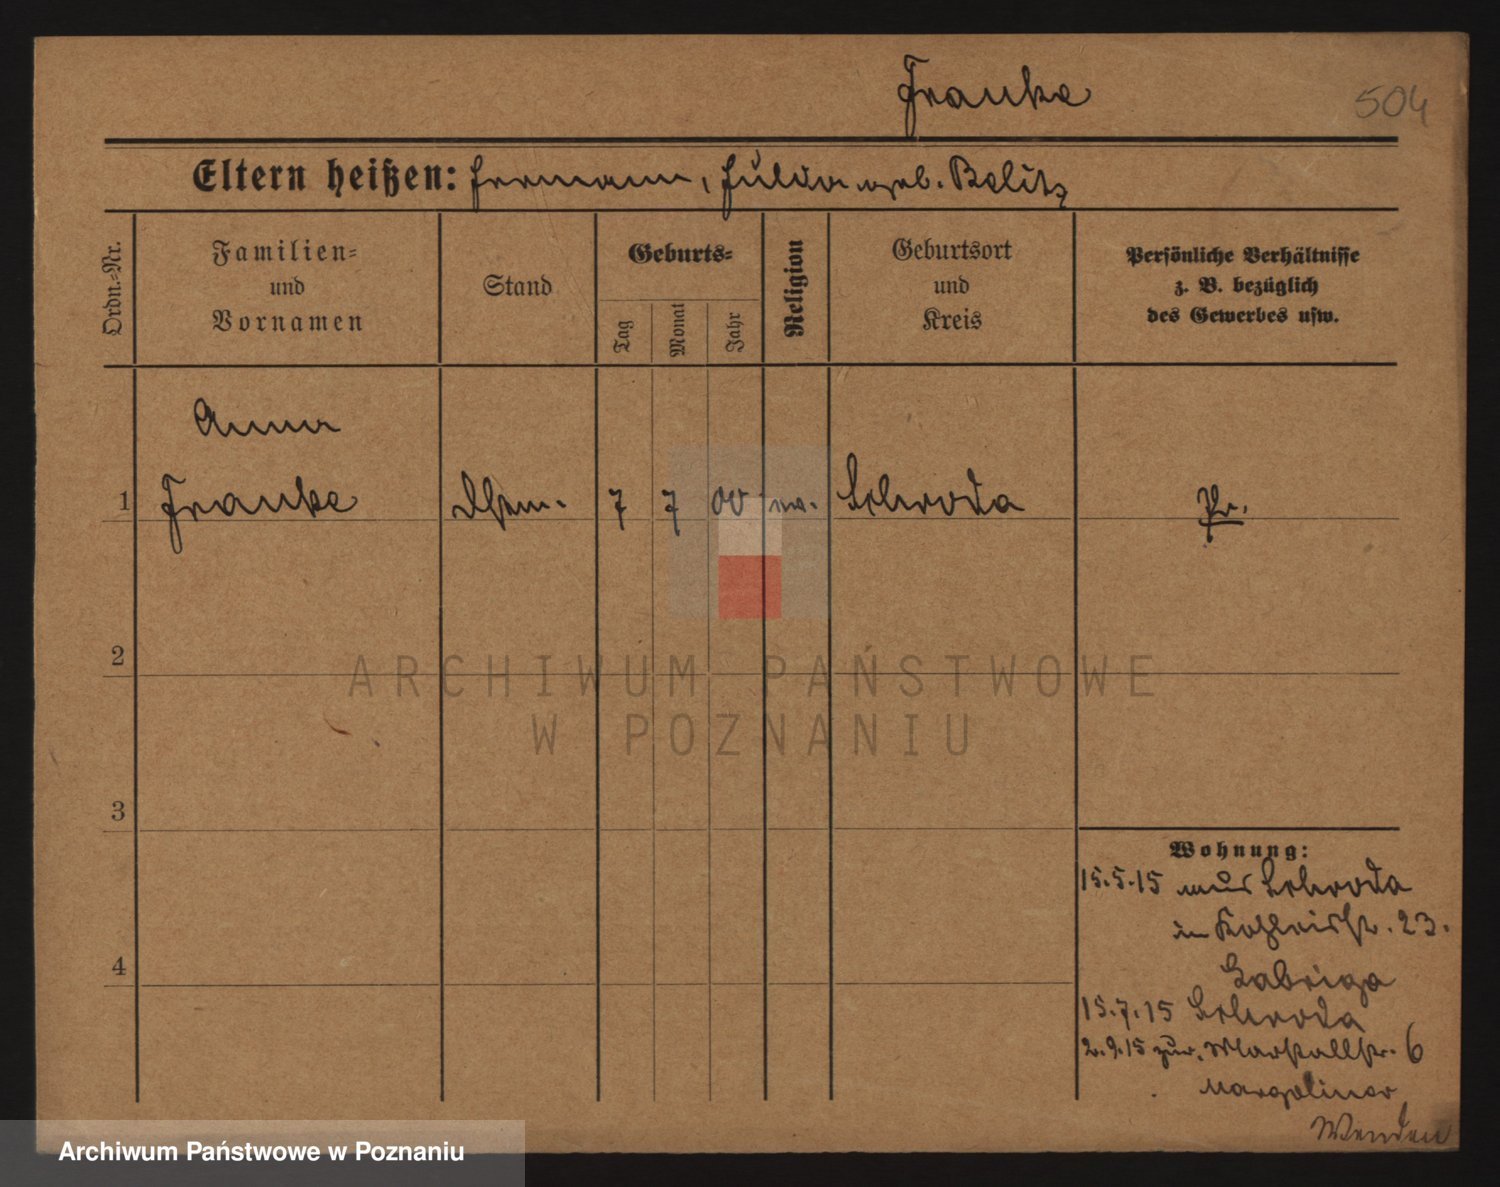 Franke
504
Eltern heißen: Hermann, Julia geb. Belitz
Ordn.-Nr.
Familien-
und
Vornamen
Stand
Geburts-
Tag
Monat
Jahr
Religion
Geburtsort
und
Kreis
Persönliche Verhältnisse
z. B. bezüglich
des Gewerbes usw.
Anna
1 Franke 7 7 00 ev. Schroda Pr.
2
3
4
Wohnung:
15.5.15 aus Schroda
in 23.
15.7.15 Schroda
2.9.15 zur. Marstallstr. 6
Margoliner
Wenden
ARCHIWUM PAŃSTWOWE
W POZNANIU
Archiwum Państwowe w Poznaniu